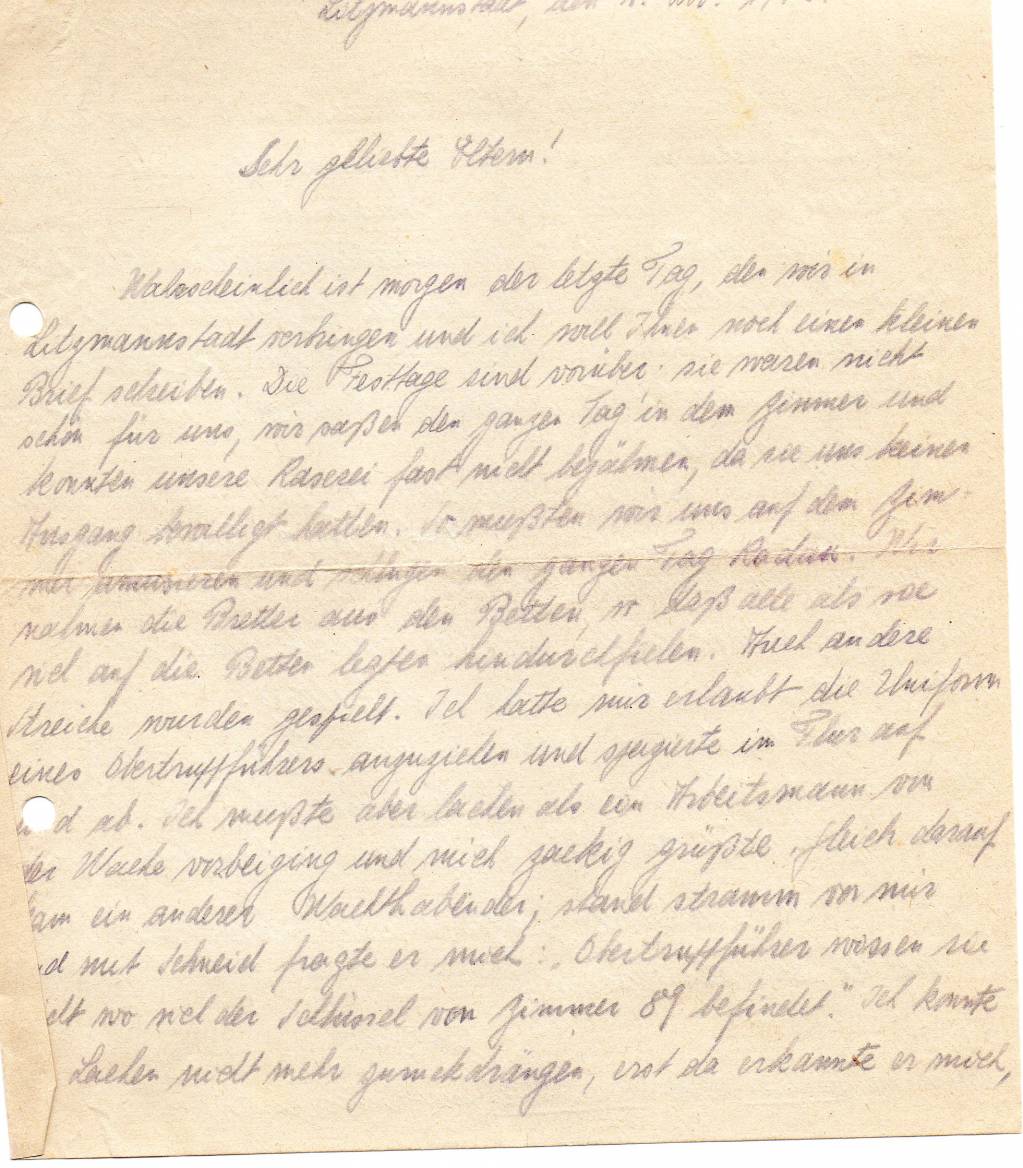 Litzmannstadt, den
Sehr geliebte Eltern!
Wahrscheinlich ist morgen der letzte Tag, den wir in
Litzmannstadt verbringen und ich will Ihnen noch einen kleinen
Brief schreiben. Die Festtage sind vorüber. sie waren nicht
schön für uns, wir saßen den ganzen Tag in dem Zimmer und
konnten unsere Raserei fast nicht bezähmen, da sie uns keinen
Ausgang bewilligt hatten. So mußten wir uns auf dem Zim-
mer amüsieren und schlugen den ganzen Tag Radau. Wir
nahmen die Bretter aus den Betten, so daß alle als sie
sich auf die Betten legten hindurchfielen. Auch andere
Streiche wurden gespielt. Ich hatte mir erlaubt die Uniform
eines Obertruppführers anzuziehen und spazierte im Flur auf
und ab. Ich mußte aber lachen als ein Arbeitsmann von
der Wache vorbeiging und mich zackig grüßte. Gleich darauf
kam ein anderer Wachthabender; stand stramm vor mir
nd mit Schneid fragte er mich: „Obertruppführer wissen sie
cht wo sich der Schlüssel von Zimmer 89 befindet." Ich konnte
Lachen nicht mehr zurückdrängen, erst da erkannte er mich,